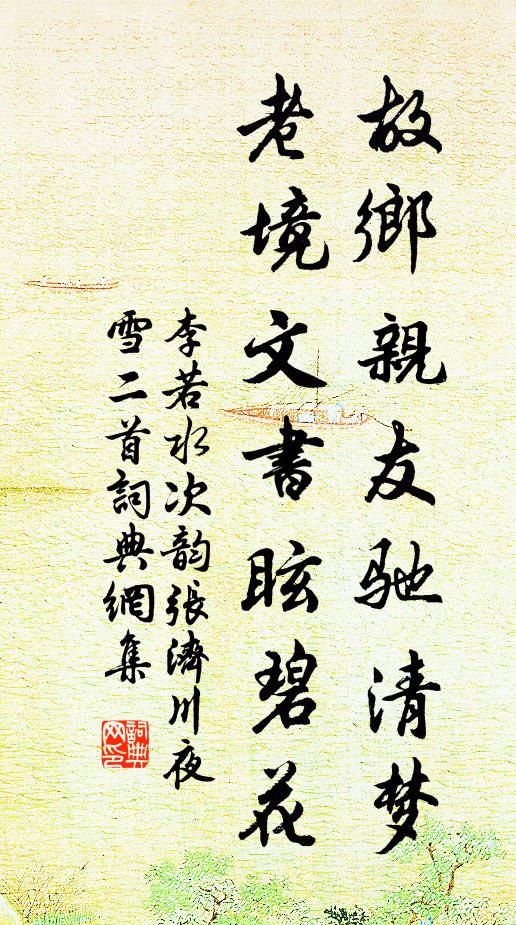 故鄉親友馳清梦
老境文書眩碧花
李若水次韵張濟川夜
雪二首詞典網集
詞典网印